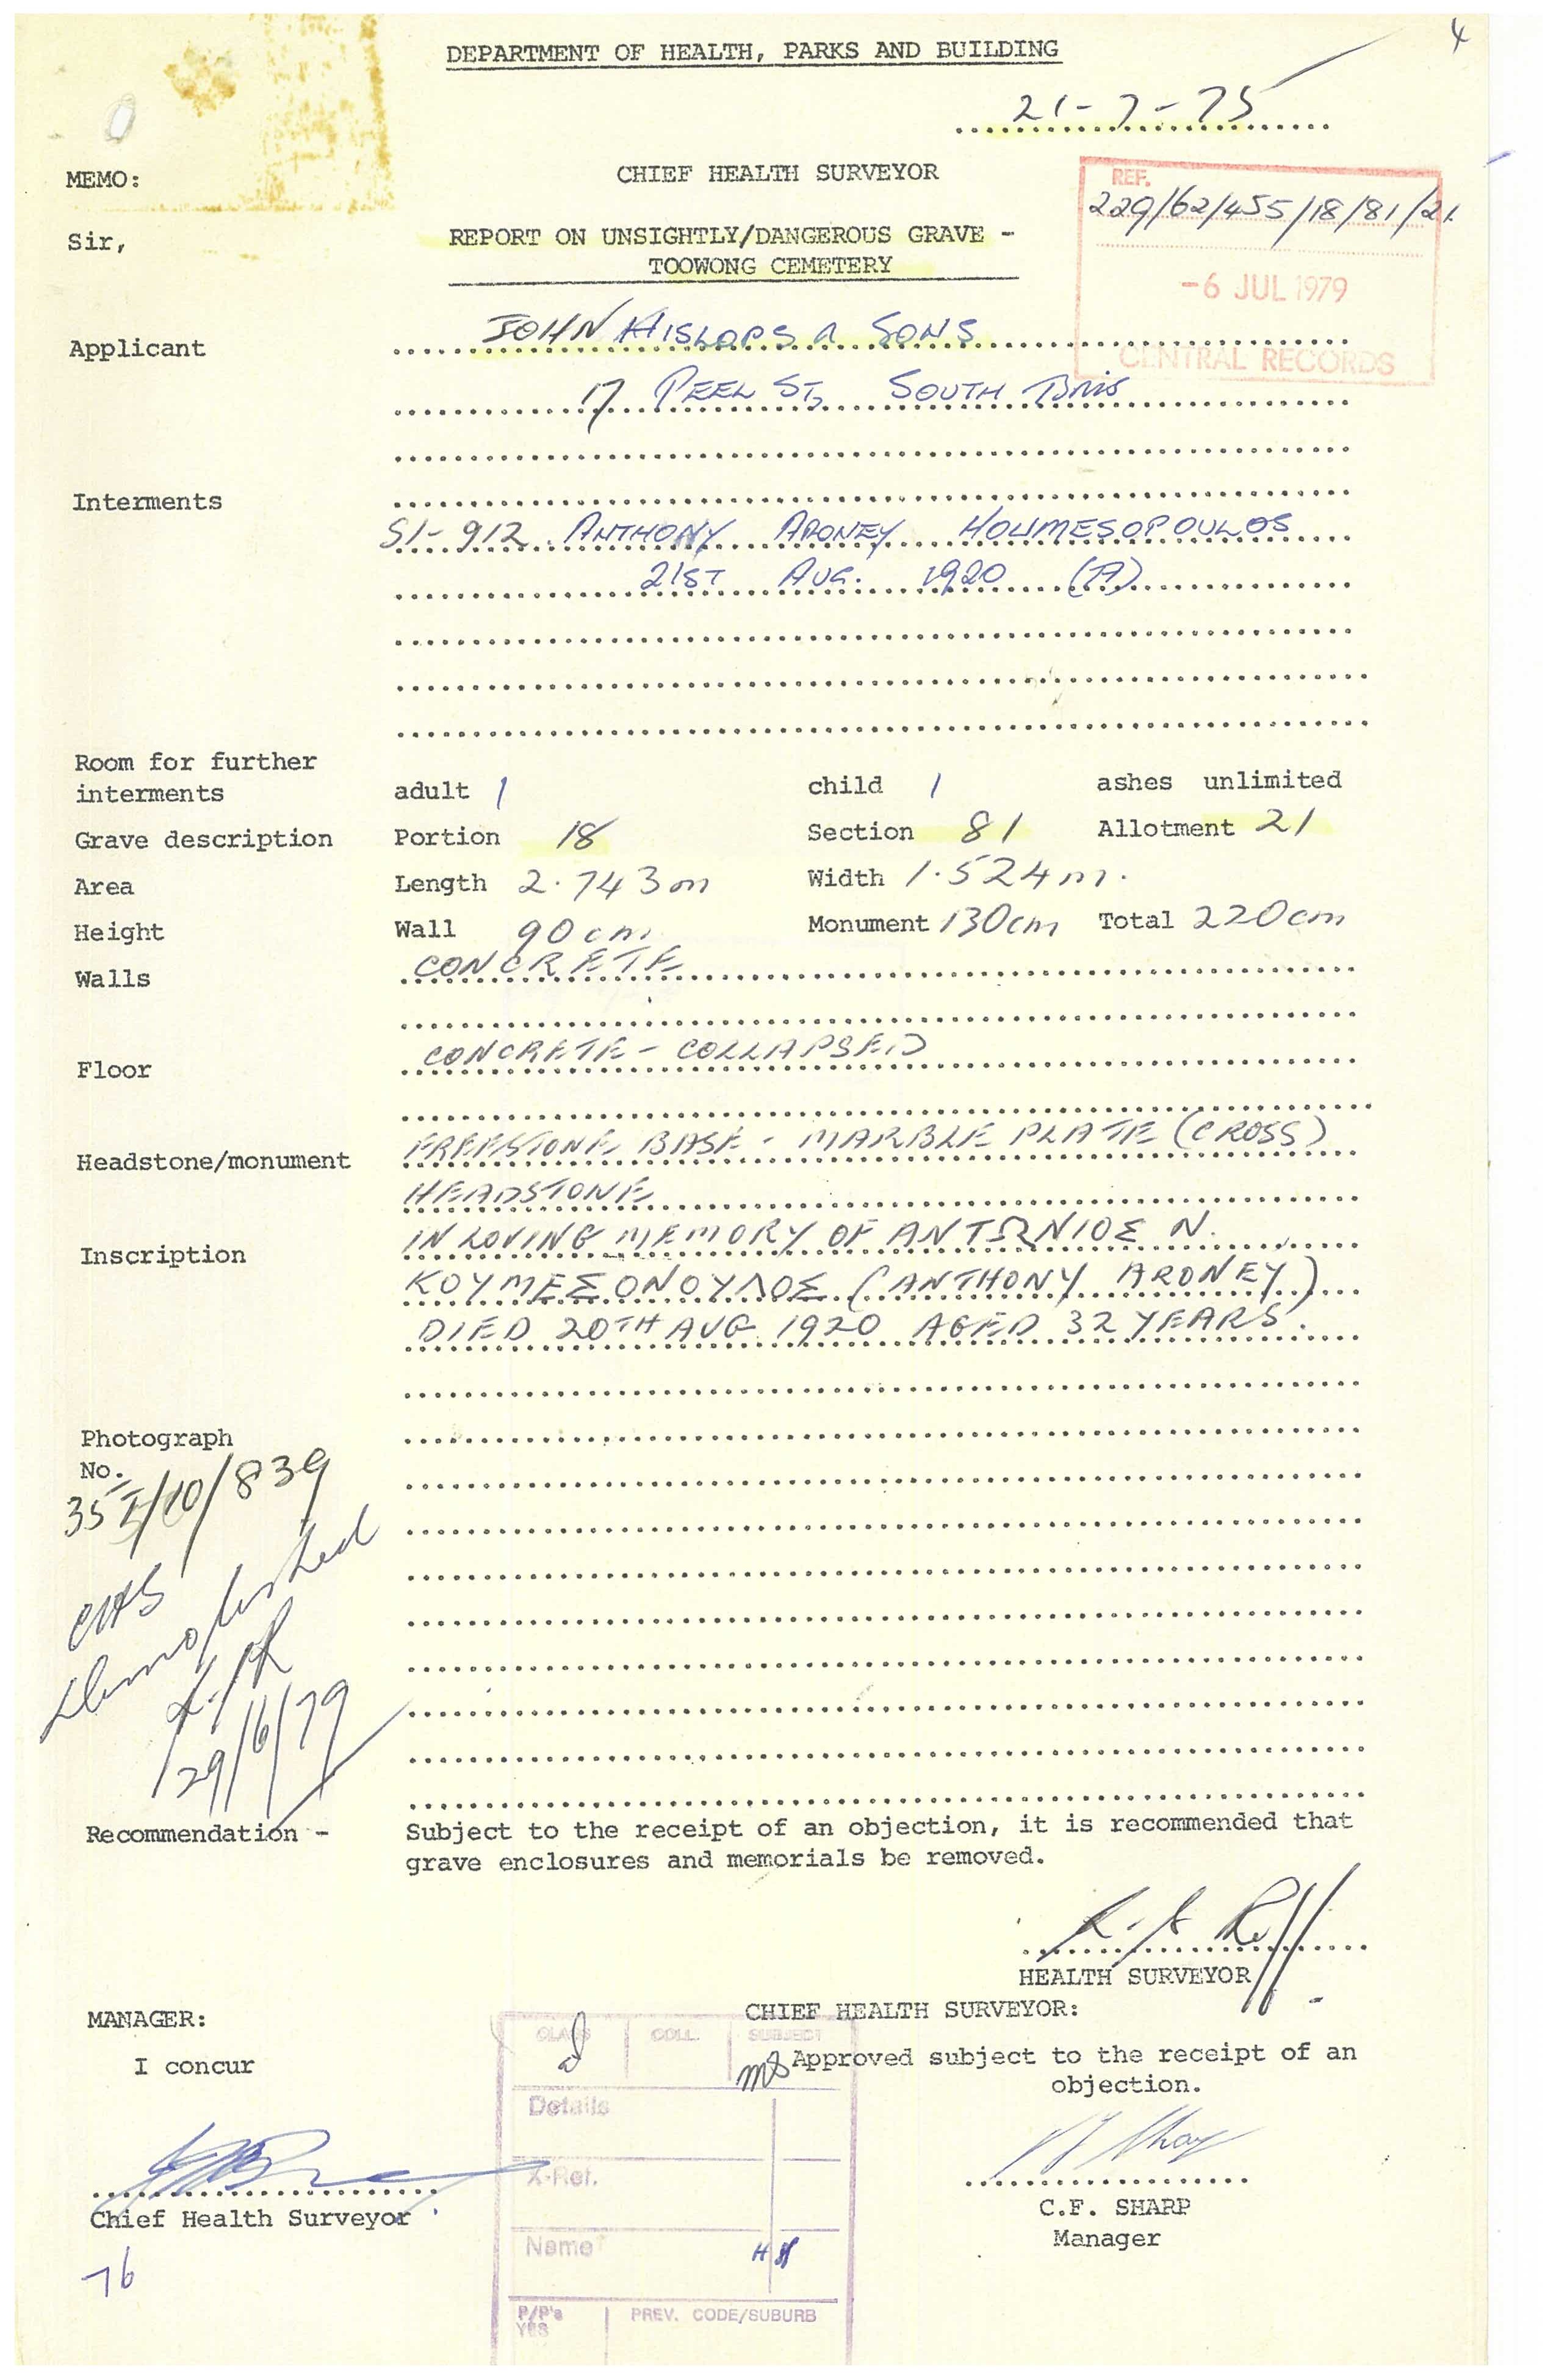 4
DEPARTMENT OF HEALTH, PARKS AND BUILDING
21-7-75
MEMO:
CHIEF HEALTH SURVEYOR
REF.
229/62/455/18/81/21
Sir,
REPORT ON UNSIGHTLY/DANGEROUS GRAVE -
TOOWONG CEMETERY
-6 JUL 1979
CENTRAL RECORDS
Applicant JOHN HISLOPS & SONS
17 PEEL ST, SOUTH BRIS
Interments
51-912 ANTHONY ARONEY HOUMESOPOULOS
21ST AUG. 1920 (A)
Room for further
interments adult 1 child 1 ashes unlimited
Grave description Portion 18 Section 81 Allotment 21
Area Length 2.743m Width 1.524m.
Height Wall 90cm Monument 130cm Total 220cm
Walls CONCRETE
Floor CONCRETE - COLLAPSED
Headstone/monument FREESTONE BASE - MARBLE PLATE (CROSS)
HEADSTONE
Inscription IN LOVING MEMORY OF ANTΩNIOΣ N.
KOYMEΣONOYΛOΣ (ANTHONY ARONEY)
DIED 20TH AUG 1920 AGED 32 YEARS.
Photograph
No.
35 I/10/839
demolished
29/6/79
Recommendation - Subject to the receipt of an objection, it is recommended that
grave enclosures and memorials be removed.
HEALTH SURVEYOR
MANAGER:
CHIEF HEALTH SURVEYOR:
I concur
Approved subject to the receipt of an
objection.
CLASS COLL. SUBJECT
Details
X-Ref.
Name
P/P's
YES
PREV. CODE/SUBURB
Chief Health Surveyor
C.F. SHARP
Manager
76